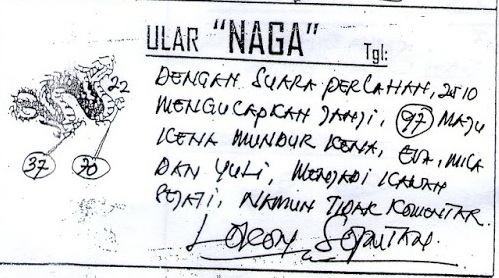 ULAR "NAGA" Tgl:
22
DENGAN SUARA PERLAHAN, 2510
MENGUCAPKAN JANJI, 97 MAJU
KENA MUNDUR KENA, EVA, MICA
37 70
DAN YULI, MENJADI KAWAN
SEJATI, NAMUN TIDAK KOMENTAR.
LOKON SOPUTAN.